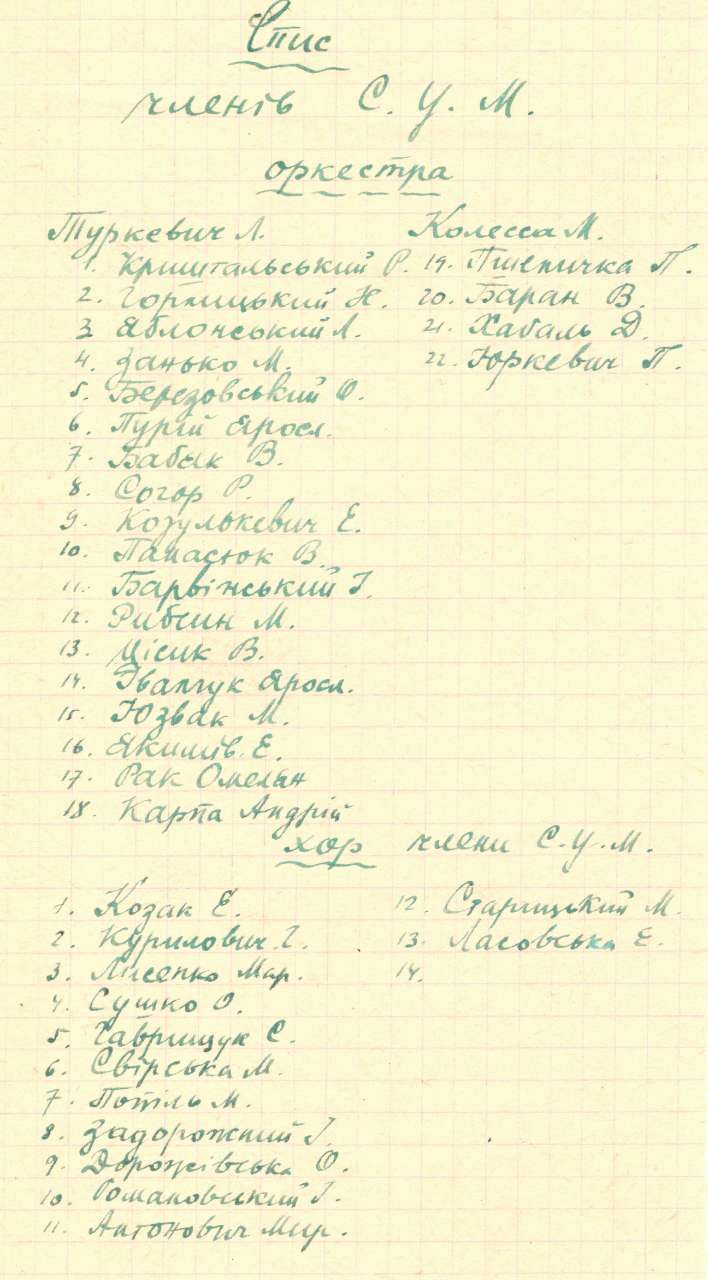 Спис
членів С. У. М.
оркестра
Туркевич Л.
1. Кришталський Р.
2. Горницький Н.
3 Яблонський Л.
4. Занько М.
5. Березовський О.
6. Пургій Яросл.
7. Бабяк В.
8. Согор Р.
9. Козулькевич Е.
10. Панасюк В.
11. Барвінський І.
12. Рибсин М.
13. Цісик В.
14. Іванчук Яросл.
15. Юзвак М.
16. Якимів. Е.
17. Рак Омелян
18. Карпа Андрій
Колесса М.
19. Пшеничка П.
20. Баран В.
21. Хабаль Д.
22. Юркевич П.
хор члени С. У. М.
1. Козак Е.
2. Курилович Г.
3. Лисенко Мар.
4. Сушко О.
5. Гаврищук С.
6. Свірська М.
7. Потіль М.
8. Задорожний І.
9. Дорожівська О.
10. Романовський Г.
11. Антонович Мир.
12. Старицький М.
13. Ласовська Е.
14.